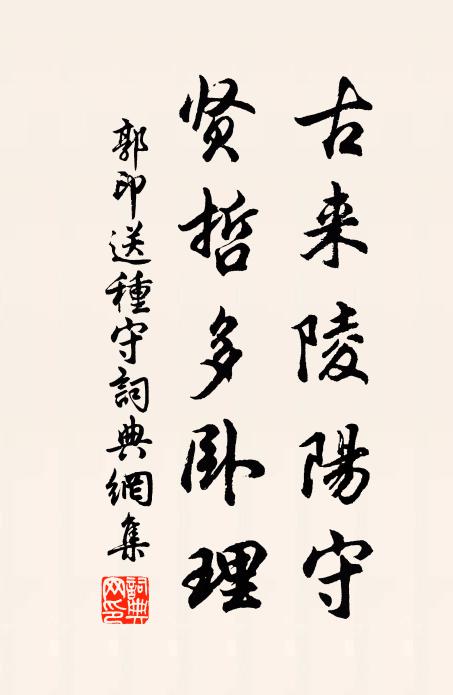 古来陵陽守
贤哲多卧理
郭印送種守詞典網集
詞典網印